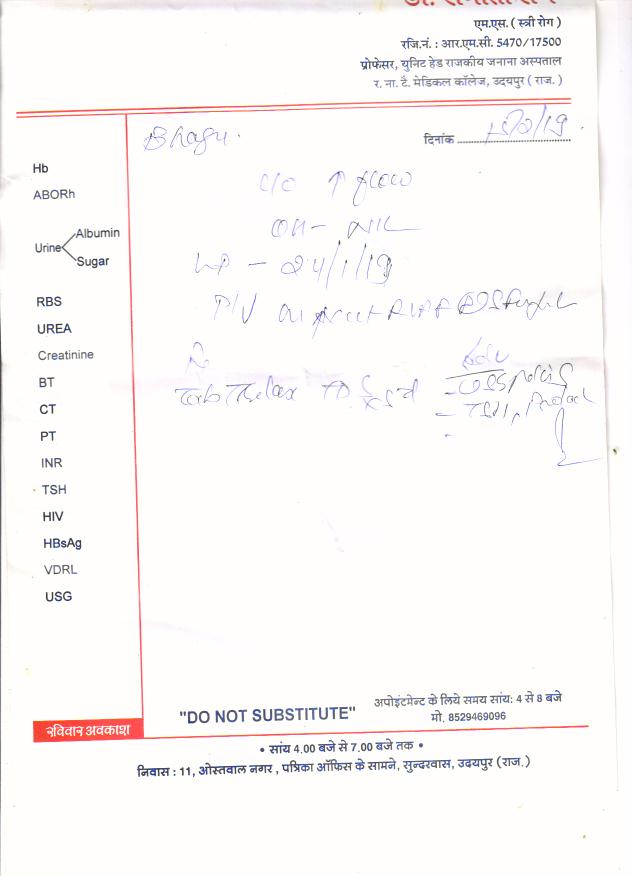 एम.एस. ( स्त्री रोग )
रजि.नं. : आर.एम.सी. 5470/17500
प्रोफेसर, युनिट हेड राजकीय जनाना अस्पताल
र. ना. टै. मेडिकल कॉलेज, उदयपुर ( राज. )
Bhagu.
दिनांक
C/O ↑ flow
OH - NIL
LP - 24/1/19
P/V
Tab
Adv
TSH,
Hb
ABORh
Urine
Albumin
Sugar
RBS
UREA
Creatinine
BT
CT
PT
INR
TSH
HIV
HBsAg
VDRL
USG
रविवार अवकाश
"DO NOT SUBSTITUTE"
अपोइंटमेन्ट के लिये समय सांय: 4 से 8 बजे
मो. 8529469096
• सांय 4.00 बजे से 7.00 बजे तक •
निवास : 11, ओस्तवाल नगर , पत्रिका ऑफिस के सामने, सुन्दरवास, उदयपुर (राज.)